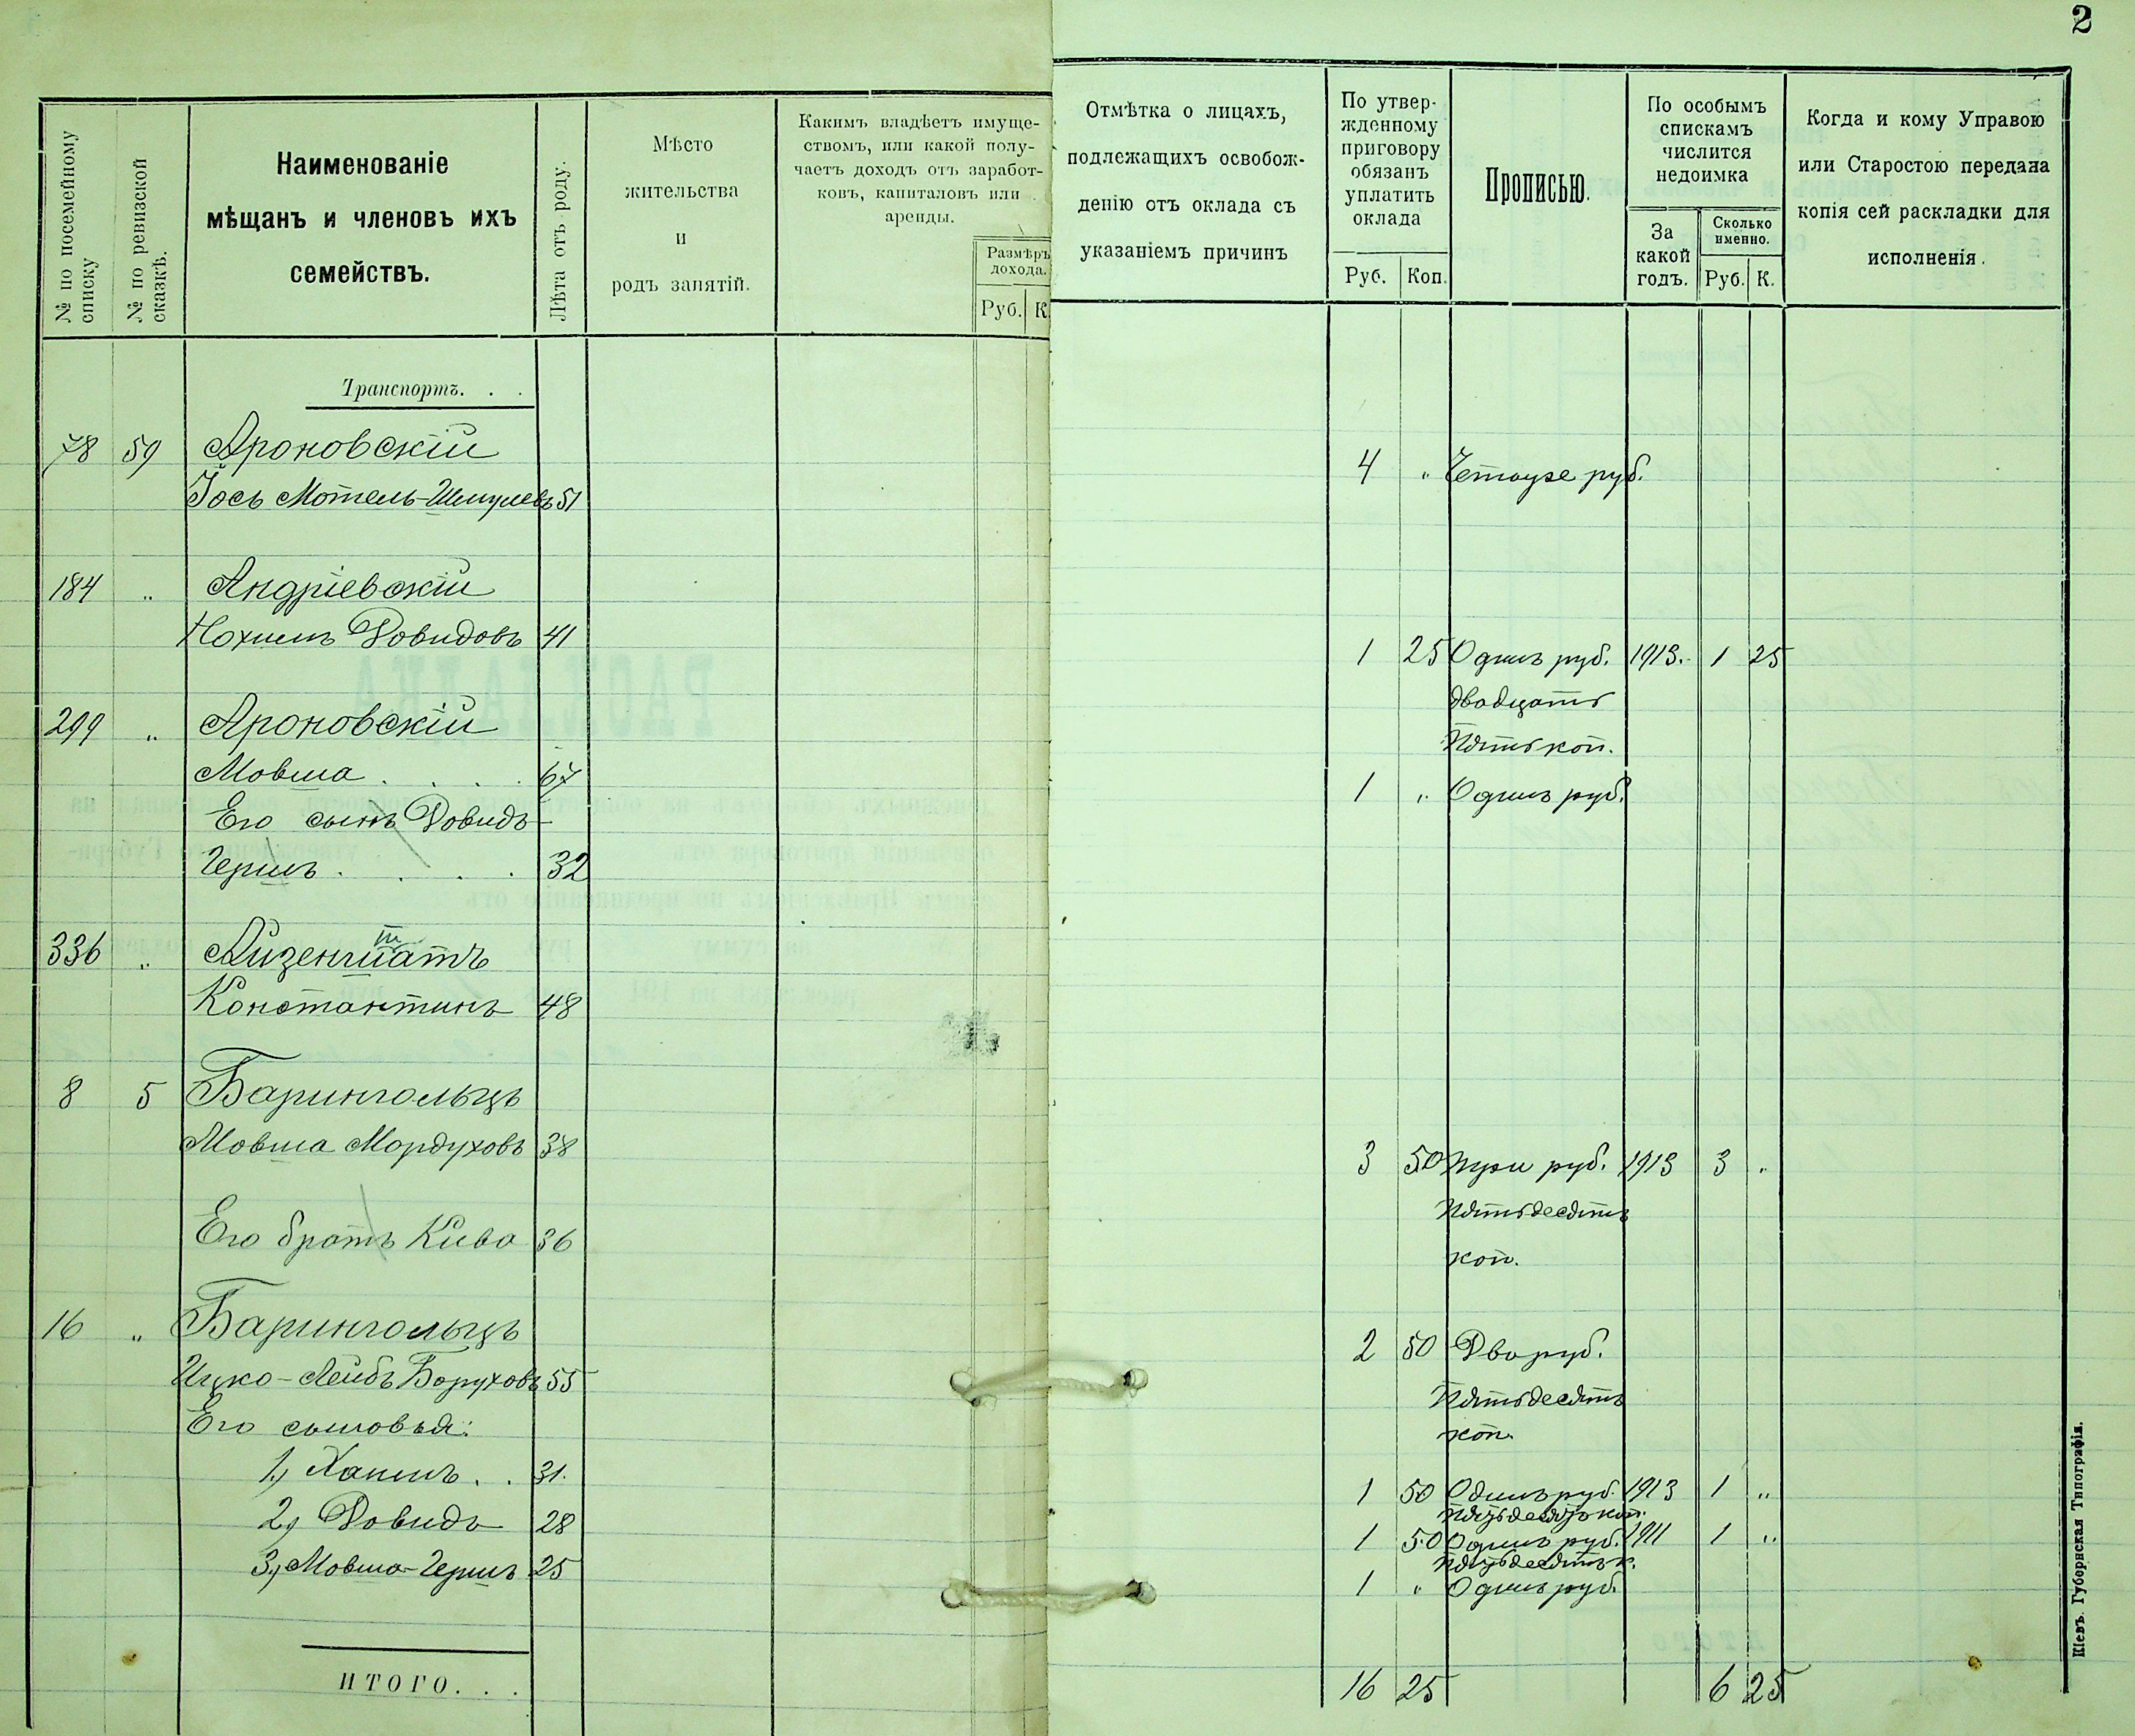 2
№ по посемейному списку
№ по ревизской сказкѣ.
Наименованіе
мѣщанъ и членовъ ихъ
семействъ.
Лѣта отъ роду.
Мѣсто
жительства
и
родъ занятій.
Какимъ владѣетъ имуще-
ствомъ, или какой полу-
чаетъ доходъ отъ заработ-
ковъ, капиталовъ или
аренды.
Размѣръ
дохода.
Руб. К
Отмѣтка о лицахъ,
подлежащихъ освобож-
денію отъ оклада съ
указаніемъ причинъ
По утвер-
жденному
приговору
обязанъ
уплатить
оклада
Руб. Коп.
Прописью.
По особымъ
спискамъ
числится
недоимка
За
какой
годъ.
Сколько
именно.
Руб. К.
Когда и кому Управою
или Старостою передана
копія сей раскладки для
исполненія.
Транспортъ. . .
78 59 Ароновскій
4 " Четыре руб.
Іось Мотель-Шмулевъ 51
184 " Андріевскій
Нохимъ Довидовъ 41 1 25 Одинъ руб. 1913. 1 25
двадцать
299 " Ароновскій
пять коп.
Мовша . . . . 67 1 " Одинъ руб.
Его сынъ Довидъ-
Гершъ . . . . 32
336 " Айзенштатъ
Константинъ 48
8 5 Барингольцъ
Мовша Мордуховъ 38 3 50 Три руб. 1913 3 "
пятьдесятъ
Его братъ Кива 36
коп.
16 " Барингольцъ
2 50 Два руб.
Ицко-Лейбъ Боруховъ 55
пятьдесятъ
Его сыновья:
коп.
1) Хаимъ . . 31. 1 50 Одинъ руб. 1913 1 "
пятьдесятъ коп.
2) Довидъ 28 1 50 Одинъ руб. 1911 1 "
пятьдесятъ к.
3) Мовша-Гершъ 25 1 " Одинъ руб.
ИТОГО. . . 16 25 6 25
Кіевъ. Губернская Типографія.